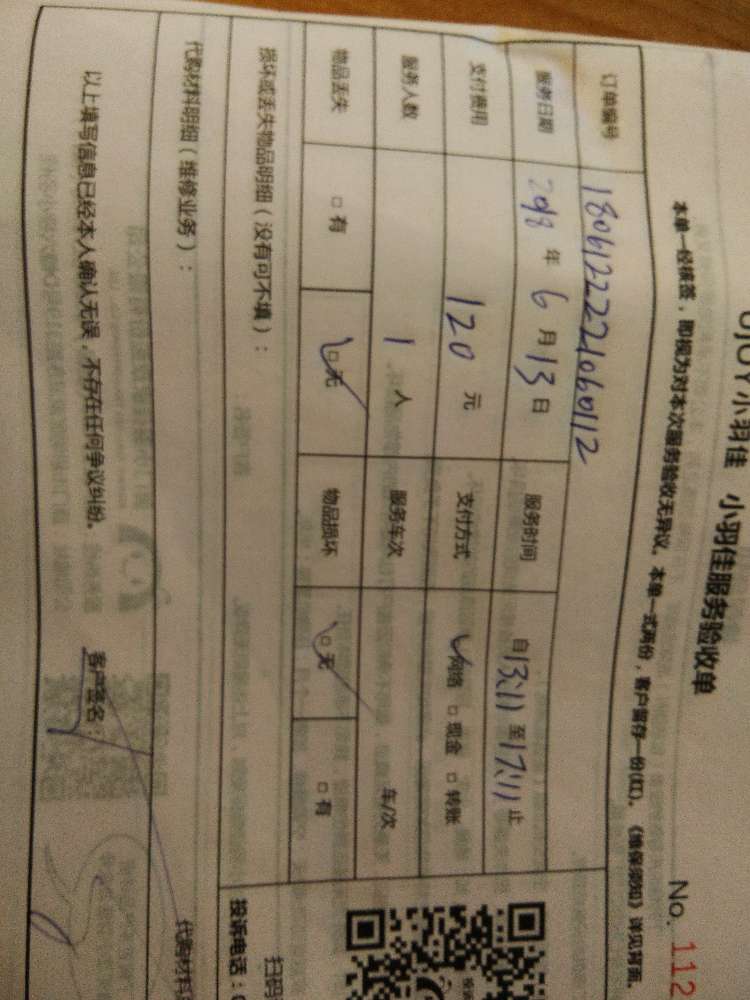 UJOY小羽佳 小羽佳服务验收单
No. 112
本单一经核签，即视为对本次服务验收无异议。本单一式两份，客户留存一份(红)。《维保须知》详见背面。
订单编号 1806122221060112
服务日期 2018 年 6 月 13 日 服务时间 自 13:11 至 17:11 止
支付费用 120 元 支付方式 ☑网络 □现金 □转账
服务人数 1 人 服务车次 车/次
物品丢失 □有 ☑无 物品损坏 ☑无 □有
损坏或丢失物品明细（没有可不填）：
扫码
投诉电话：
代购材料明细（维修业务）：
代购材料
以上填写信息已经本人确认无误，不存在任何争议纠纷。 客户签名：